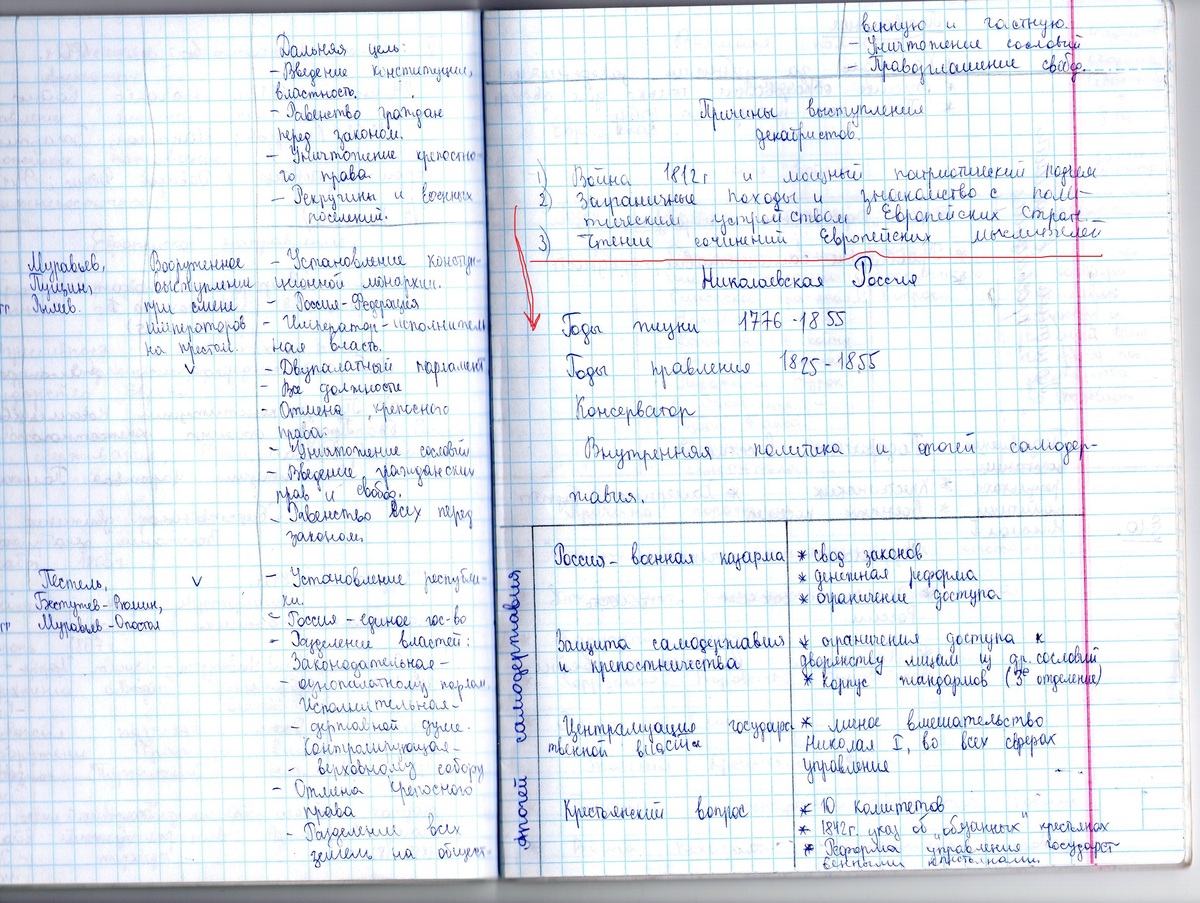 Дальняя цель:
- Введение конституции,
властность.
- Равенство граждан
перед законом.
- Уничтожение крепостно-
го права.
- Рекрутчины и военных
поселений.
Муравьев,
Пущин,
Рылеев.
Вооруженное
выступление
при смене
императоров
на престол.
- Установление консту-
ционной монархии.
- Россия-Федерация
- Император-исполнитель
ная власть.
- Двупалатный парламент
- Все должности
- Отмена крепосного
права.
- Уничтожение сословий
- Введение гражданских
прав и свобод.
- Равенство всех перед
законом.
Пестель,
Бестужев-Рюмин,
Муравьев-Опостол
- Установление республи-
ки.
- Россия - единое гос-во
- Разделение властей:
Законодательная -
- однопалатному парлам
Исполнительная-
- державной думе.
Контралирующая-
- верховному собору
- Отмена крепосного
права
- Разделение всех
земель на общест-
венную и частную.
- Уничтожение сословий
- Провозглашение свобод.
Причины выступления
декабристов.
1) Война 1812г и мощный патриотический подъем
2) Заграничные походы и знакомство с поли-
тическим устройством Европейских стран.
3) Чтение сочинений Европейских мыслителей
Николаевская Россия
Годы жизни 1776-1855
Годы правления 1825-1855
Консерватор
Внутренняя политика и апогей самодер-
жавия.
Апогей самодержавия
Россия - военная казарма
* свод законов
* денежная реформа
* ограничение доступа
Защита самодержавия
и крепостничества
* ограничения доступа к
дворенству лицам из др. сословий
* корпус жандармов (3е отделение)
Централизация государс
твенной власти
* личное вмешательство
Николая I, во всех сферах
управление
Крестьянский вопрос
* 10 комитетов
* 1842г. указ об "обязанных" крестьянах
* Реформа управления государст
венными крестьянами.